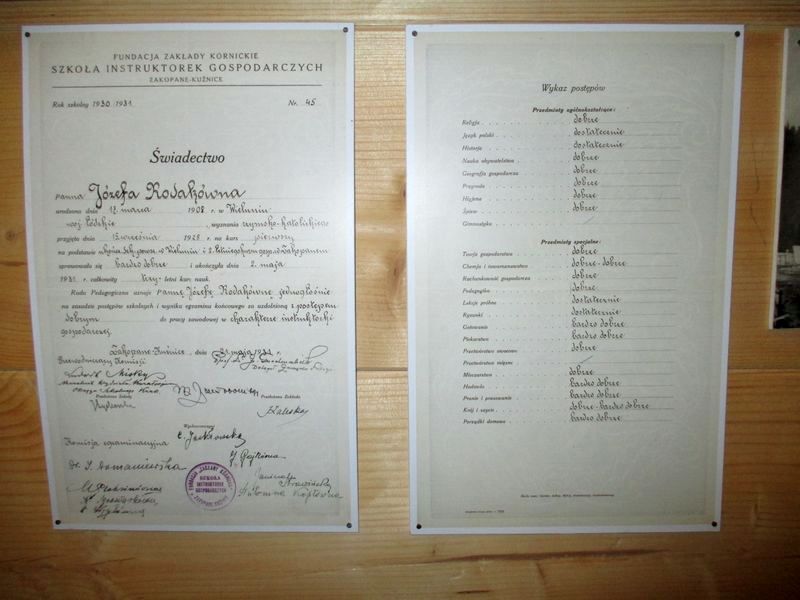 FUNDACJA ZAKŁADY KÓRNICKIE
SZKOŁA INSTRUKTOREK GOSPODARCZYCH
ZAKOPANE-KUŹNICE
Rok szkolny 1930/1931. Nr. 45
Świadectwo
Panna Józefa Rodakówna
urodzona dnia 12 marca 1908 r. w Wieluniu
woj. Łódzkie, wyznania rzymsko-katolickiego
przyjęta dnia września 1928 r. na kurs pierwszy
na podstawie w Wieluniu i w Zakopanem
sprawowała się bardzo dobrze i ukończyła dnia 2. maja
1931 r. całkowity trzy-letni kurs nauk.
Rada Pedagogiczna uznaje Pannę Józefę Rodakównę jednogłośnie
na zasadzie postępów szkolnych i wyniku egzaminu końcowego za uzdolnioną z postępem
dobrym do pracy zawodowej w charakterze instruktorki
gospodarczej.
Zakopane-Kuźnice, dnia 2 maja 1931
Przewodniczący Komisji
Przełożona Szkoły
Przełożona Zakładu
Zaleska
Wychowawczyni
Komisja egzaminacyjna
FUNDACJA "ZAKŁADY KÓRNICKIE"
SZKOŁA
INSTRUKTOREK
GOSPODARCZYCH
Wykaz postępów
Przedmioty ogólnokształcące:
Religja dobrze
Język polski dostatecznie
Historja dostatecznie
Nauka obywatelstwa dobrze
Geografja gospodarcza dobrze
Przyroda dobrze
Higjena dobrze
Śpiew dobrze
Gimnastyka
Przedmioty specjalne:
Teorja gospodarstwa dobrze
Chemja i towaroznawstwo dobrze - dobrze
Rachunkowość gospodarcza dobrze
Pedagogika dobrze
Lekcje próbne dostatecznie
Rysunki dostatecznie
Gotowanie bardzo dobrze
Piekarstwo bardzo dobrze
Przetwórstwo owocowe dobrze
Przetwórstwo mięsne
Mleczarstwo dobrze
Hodowla bardzo dobrze
Pranie i prasowanie bardzo dobrze
Krój i szycie dobrze - bardzo dobrze
Porządki domowe bardzo dobrze